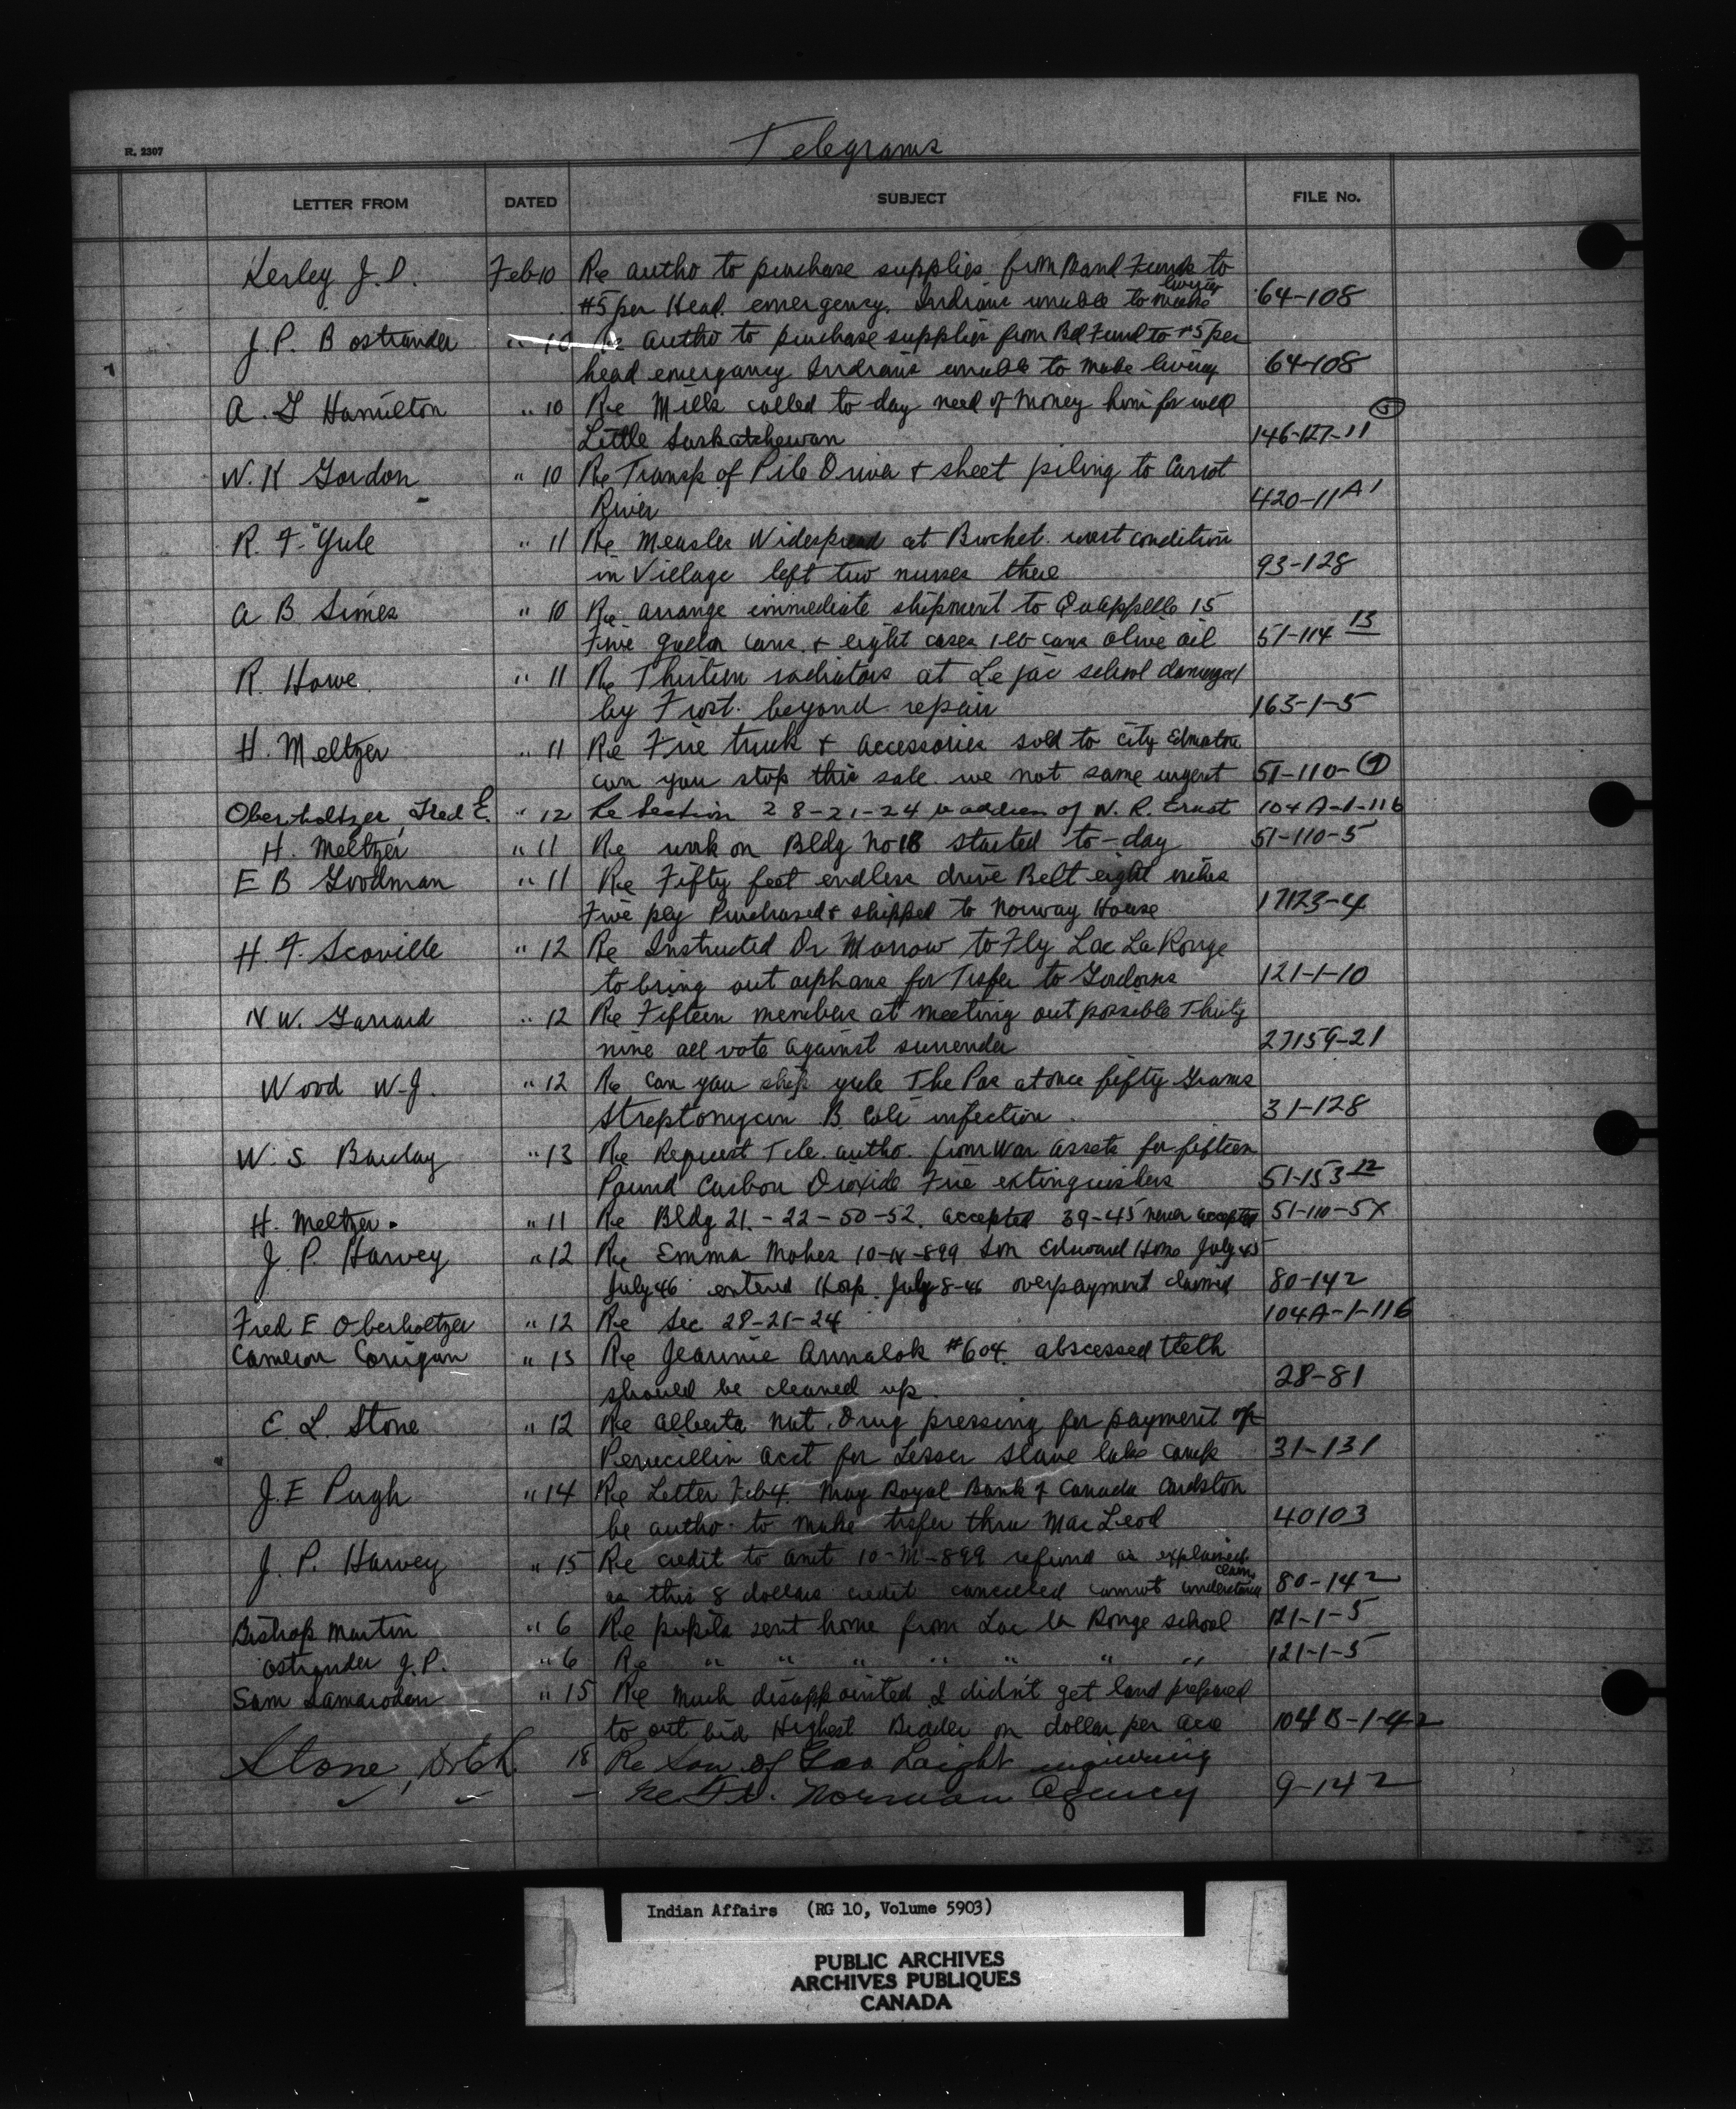 Telegrams
R. 2307
LETTER FROM DATED SUBJECT FILE No.
Kerley J. D. Feb 10 Re autho to purchase supplies from Band Funds to
$5 per Head. emergency. Indians unable to make living 64-108
J. P. B Ostrander " 10 Re autho to purchase supplies from Bd Fund to $5 per
head emergency Indians unable to make living 64-108
A. G Hamilton " 10 Re Mills called to day need of money him for well
Little Saskatchewan 146-127-11 (5)
W. K Gordon " 10 Re Transp. of Pile Driver & sheet piling to Carrot
River 420-11 A1
R. F. Yule " 11 Re Measles Widespread at Brochet. worst condition
in Village left two nurses there 93-128
A B Simes " 10 Re arrange immediate shipment to QuAppelle 15
Five gallon cans. & eight cases 1 lb cans olive oil 51-114 13
R. Howe " 11 Re Thirteen radiators at Lejac school damaged
by Frost. beyond repair 163-1-5
H. Meltzer " 11 Re Fire truck & accessories sold to city Edmonton
can you stop this sale we not same urgent 51-110-
Oberholtzer, Fred E. " 12 Re Section 28-21-24 & address of N. R. Ernst 104A-1-116
H. Meltzer " 11 Re work on Bldg No 18 started to-day 51-110-5
E B Goodman " 11 Re Fifty feet endless drive Belt eight inches
Five ply Purchased & shipped to Norway House 17123-4
H. F. Scoville " 12 Re Instructed Dr Morrow to Fly Lac La Ronge
to bring out orphans for Trsfer to Gordons 121-1-10
N W. Garrard " 12 Re Fifteen members at meeting out possible Thirty
nine all vote against surrender 27159-21
Wood W. J. " 12 Re Can you ship yule The Pas at once fifty Grams
Streptomycin B. Coli infection 31-128
W. S. Barclay " 13 Re Request Tele. autho. from War assets for fifteen
Pound Carbon Dioxide Fire extinguishers 51-153 12
H. Meltzer. " 11 Re Bldg 21.-22-50-52. accepted 39-45 never accepted 51-110-5X
J. P. Harvey " 12 Re Emma Moher 10-N-899 Son Edward Home July 45
July 46 entered Hosp. July 8-46 overpayment claimed 80-142
Fred E Oberholtzer " 12 Re Sec 28-21-24 104A-1-116
Cameron Corrigan " 13 Re Jeannie Annalok #604. abscessed teeth
should be cleaned up. 28-81
E. L. Stone " 12 Re Alberta Nat. Drug pressing for payment of
Penicillin acct for Lesser Slave lake camps 31-131
J. E Pugh " 14 Re Letter Feb 4. May Royal Bank of Canada Cardston
be autho. to make trsfer thru MacLeod 40103
J. P. Harvey " 15 Re credit to amt 10-M-899 refund as explained
as this 8 dollars credit cancelled cannot understand claim 80-142
Bishop Martin " 6 Re pupils sent home from Lac la Ronge school 121-1-5
Ostrander J. P. " 6 Re " " " " " " " 121-1-5
Sam " 15 Re Much disappointed I didn't get land prepared
to out bid Highest Bidder on dollar per acre 104 B-1-42
Stone, Dr E L. 18 Re Son of Geo. Laight enquiring
re Ft. Norman Agency 9-142
Indian Affairs (RG 10, Volume 5903)
PUBLIC ARCHIVES
ARCHIVES PUBLIQUES
CANADA